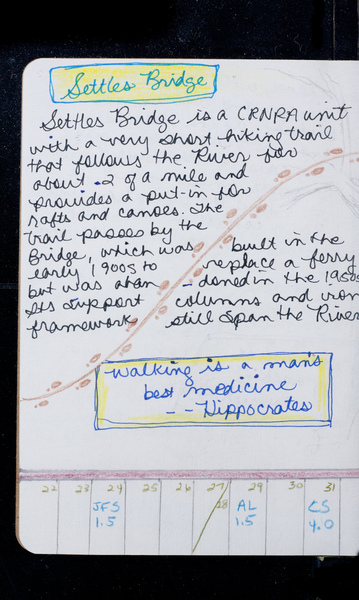 Settles Bridge
Settles Bridge is a CRNRA unit
with a very short hiking trail
that follows the River for
about .2 of a mile and
provides a put-in for
rafts and canoes. The
trail passes by the
Bridge, which was built in the
early 1900s to replace a ferry
but was aban - doned in the 1950s
Its support columns and iron
framework still span the River
Walking is a man's
best medicine
-- Hippocrates
22 23 24 25 26 27/28 29 30 31
JFS AL CS
1.5 1.5 4.0